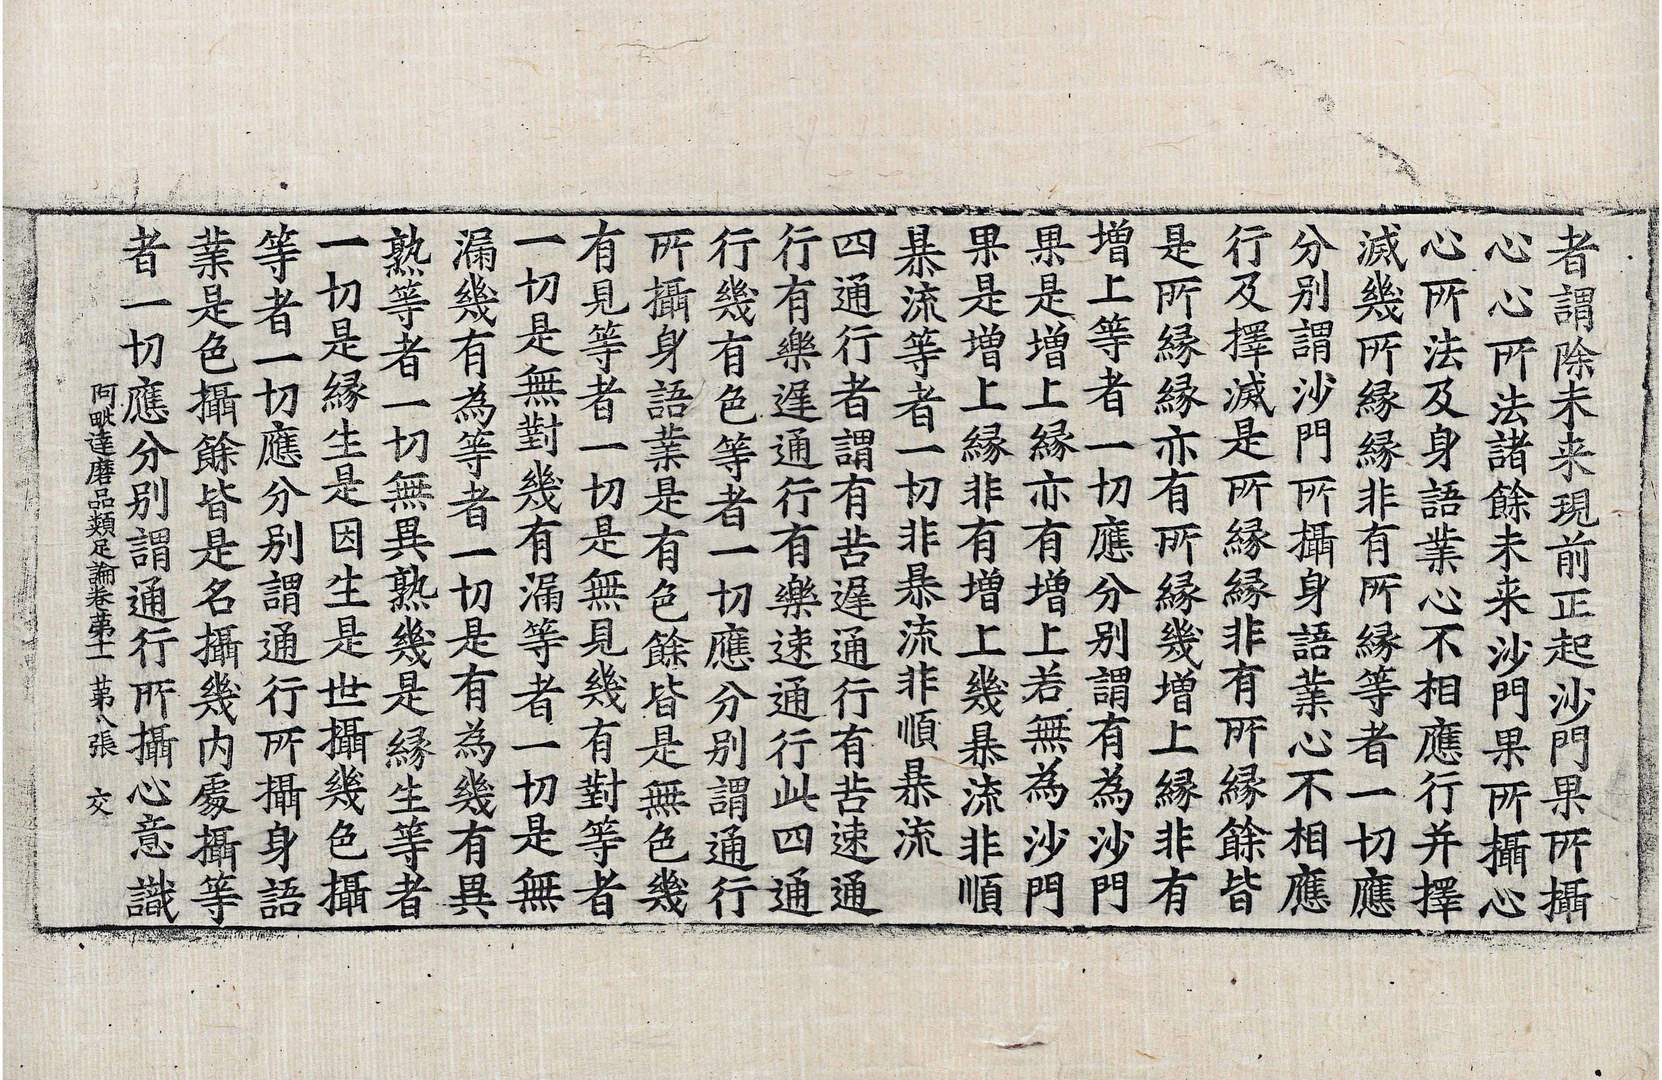 者謂除未来現前正起沙門果所攝
心心所法諸餘未来沙門果所攝心
心所法及身語業心不相應行并擇
滅幾所縁縁非有所縁等者一切應
分別謂沙門所攝身語業心不相應
行及擇滅是所縁縁非有所縁餘皆
是所縁縁亦有所縁幾增上縁非有
增上等者一切應分別謂有為沙門
果是增上縁亦有增上若無為沙門
果是增上縁非有增上幾暴流非順
暴流等者一切非暴流非順暴流
四通行者謂有苦遲通行有苦速通
行有樂遲通行有樂速通行此四通
行幾有色等者一切應分別謂通行
所攝身語業是有色餘皆是無色幾
有見等者一切是無見幾有對等者
一切是無對幾有漏等者一切是無
漏幾有為等者一切是有為幾有異
熟等者一切無異熟幾是縁生等者
一切是縁生是因生是世攝幾色攝
等者一切應分別謂通行所攝身語
業是色攝餘皆是名攝幾内處攝等
者一切應分別謂通行所攝心意識
阿毗達磨品類足論卷第十一 第八張 交